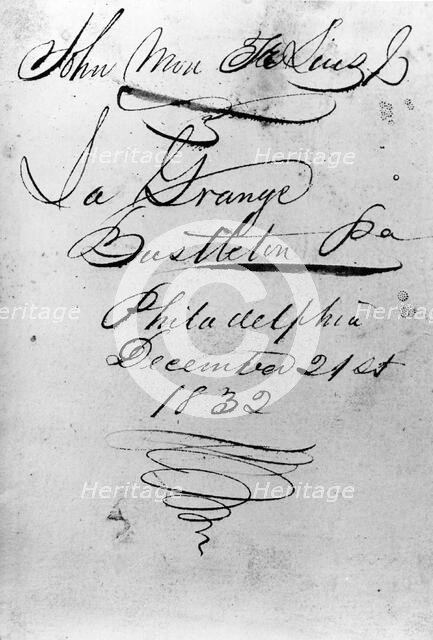 John Mon
La Grange
Bustleton Pa
Philadelphia
December 21st
1832
Heritage Heritage
Heritage Heritage
Heritage Heritage Heritage
Heritage Heritage
C